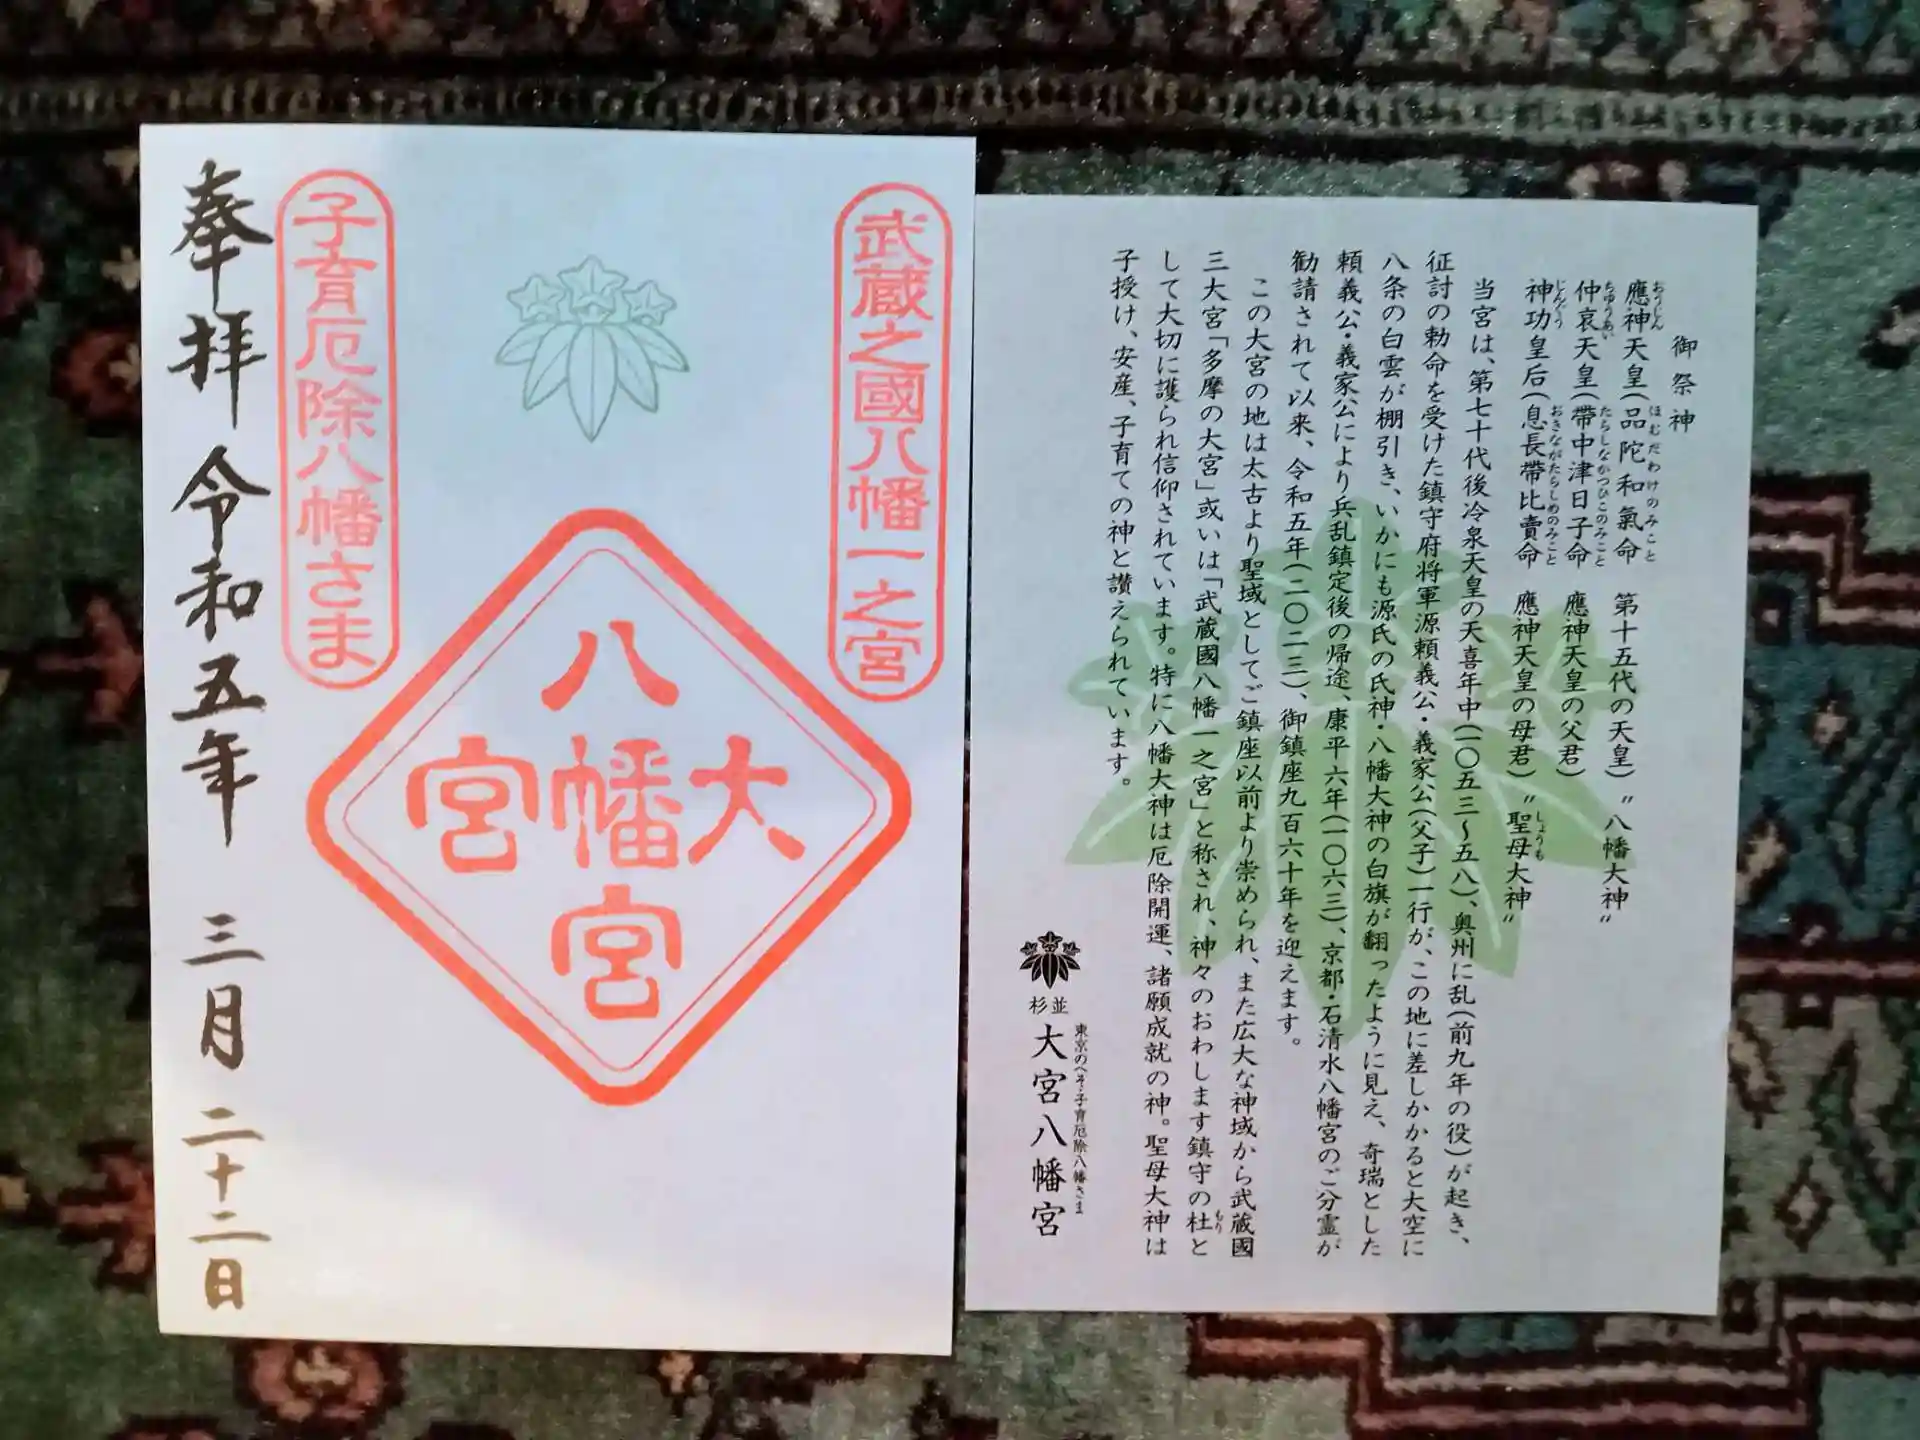 武蔵之國八幡一之宮
大宮
八幡宮
子育厄除八幡さま
奉拝 令和五年 三月 二十二日
御祭神
應神天皇(品陀和氣命 第十五代の天皇)〝八幡大神〟
おうじん ほむだわけのみこと
仲哀天皇(帶中津日子命 應神天皇の父君)
ちゅうあい たらしなかつひこのみこと
神功皇后(息長帶比賣命 應神天皇の母君)〝聖母大神〟
じんぐう おきながたらしめのみこと しょうも
当宮は、第七十代後冷泉天皇の天喜年中(一〇五三〜五八)、奥州に乱(前九年の役)が起き、
征討の勅命を受けた鎮守府将軍源頼義公・義家公(父子)一行が、この地に差しかかると大空に
八条の白雲が棚引き、いかにも源氏の氏神・八幡大神の白旗が翻ったように見え、奇瑞とした
頼義公・義家公により兵乱鎮定後の帰途、康平六年(一〇六三)、京都・石清水八幡宮のご分霊が
勧請されて以来、令和五年(二〇二三)、御鎮座九百六十年を迎えます。
この大宮の地は太古より聖域としてご鎮座以前より崇められ、また広大な神域から武蔵國
三大宮「多摩の大宮」或いは「武蔵國八幡一之宮」と称され、神々のおわします鎮守の杜と
もり
して大切に護られ信仰されています。特に八幡大神は厄除開運、諸願成就の神。聖母大神は
子授け、安産、子育ての神と讃えられています。
東京のへそ・子育厄除八幡さま
杉並
大宮八幡宮